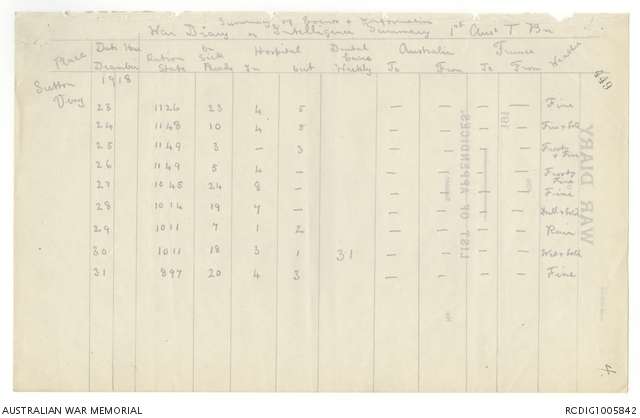 Summary of Events & Information
War Diary or Intelligence Summary 1st Aust T Bn
Place Date Hour Ration State On Sick Parade Hospital Dental Cases Weekly Australia France Weather
December In Out To From To From
Sutton Veny 1918
23 1126 23 4 5 — — — — Fine
24 1148 10 4 5 — — — — Fine & cold
25 1149 3 — 3 — — — — Frosty & Fine
26 1149 5 4 — — — — — Frosty Fine
27 1045 24 8 — — — — — Fine
28 1014 19 7 — — — — — Dull & cold
29 1011 7 1 2 — — — — Rain
30 1011 18 3 1 31 — — — — Wet & cold
31 897 20 4 3 — — — — Fine
LIST OF APPENDICES.
191
WAR DIARY
AUSTRALIAN WAR MEMORIAL
RCDIG1005842